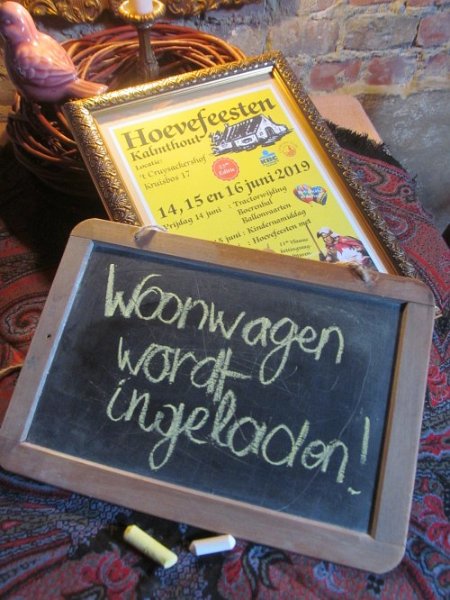 Hoevefeesten
Kalmthout
Locatie:
't Cruysackershof
Kruisbos 17
KBC
14, 15 en 16 juni 2019
Vrijdag 14 juni : Tractorwijding
Boerenbal
Ballonvaren
15 juni : Kindernamiddag
: Hoevefeesten met
Woonwagen
wordt
ingeladen!